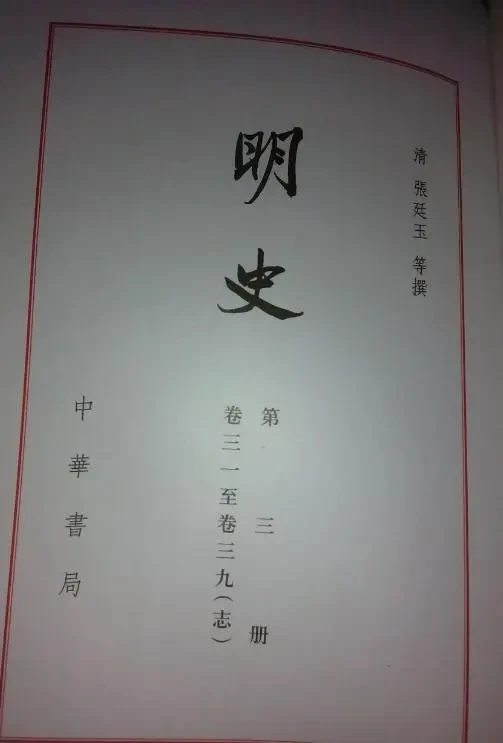 清 張廷玉 等撰
明史
第三册
卷三一至卷三九(志)
中華書局